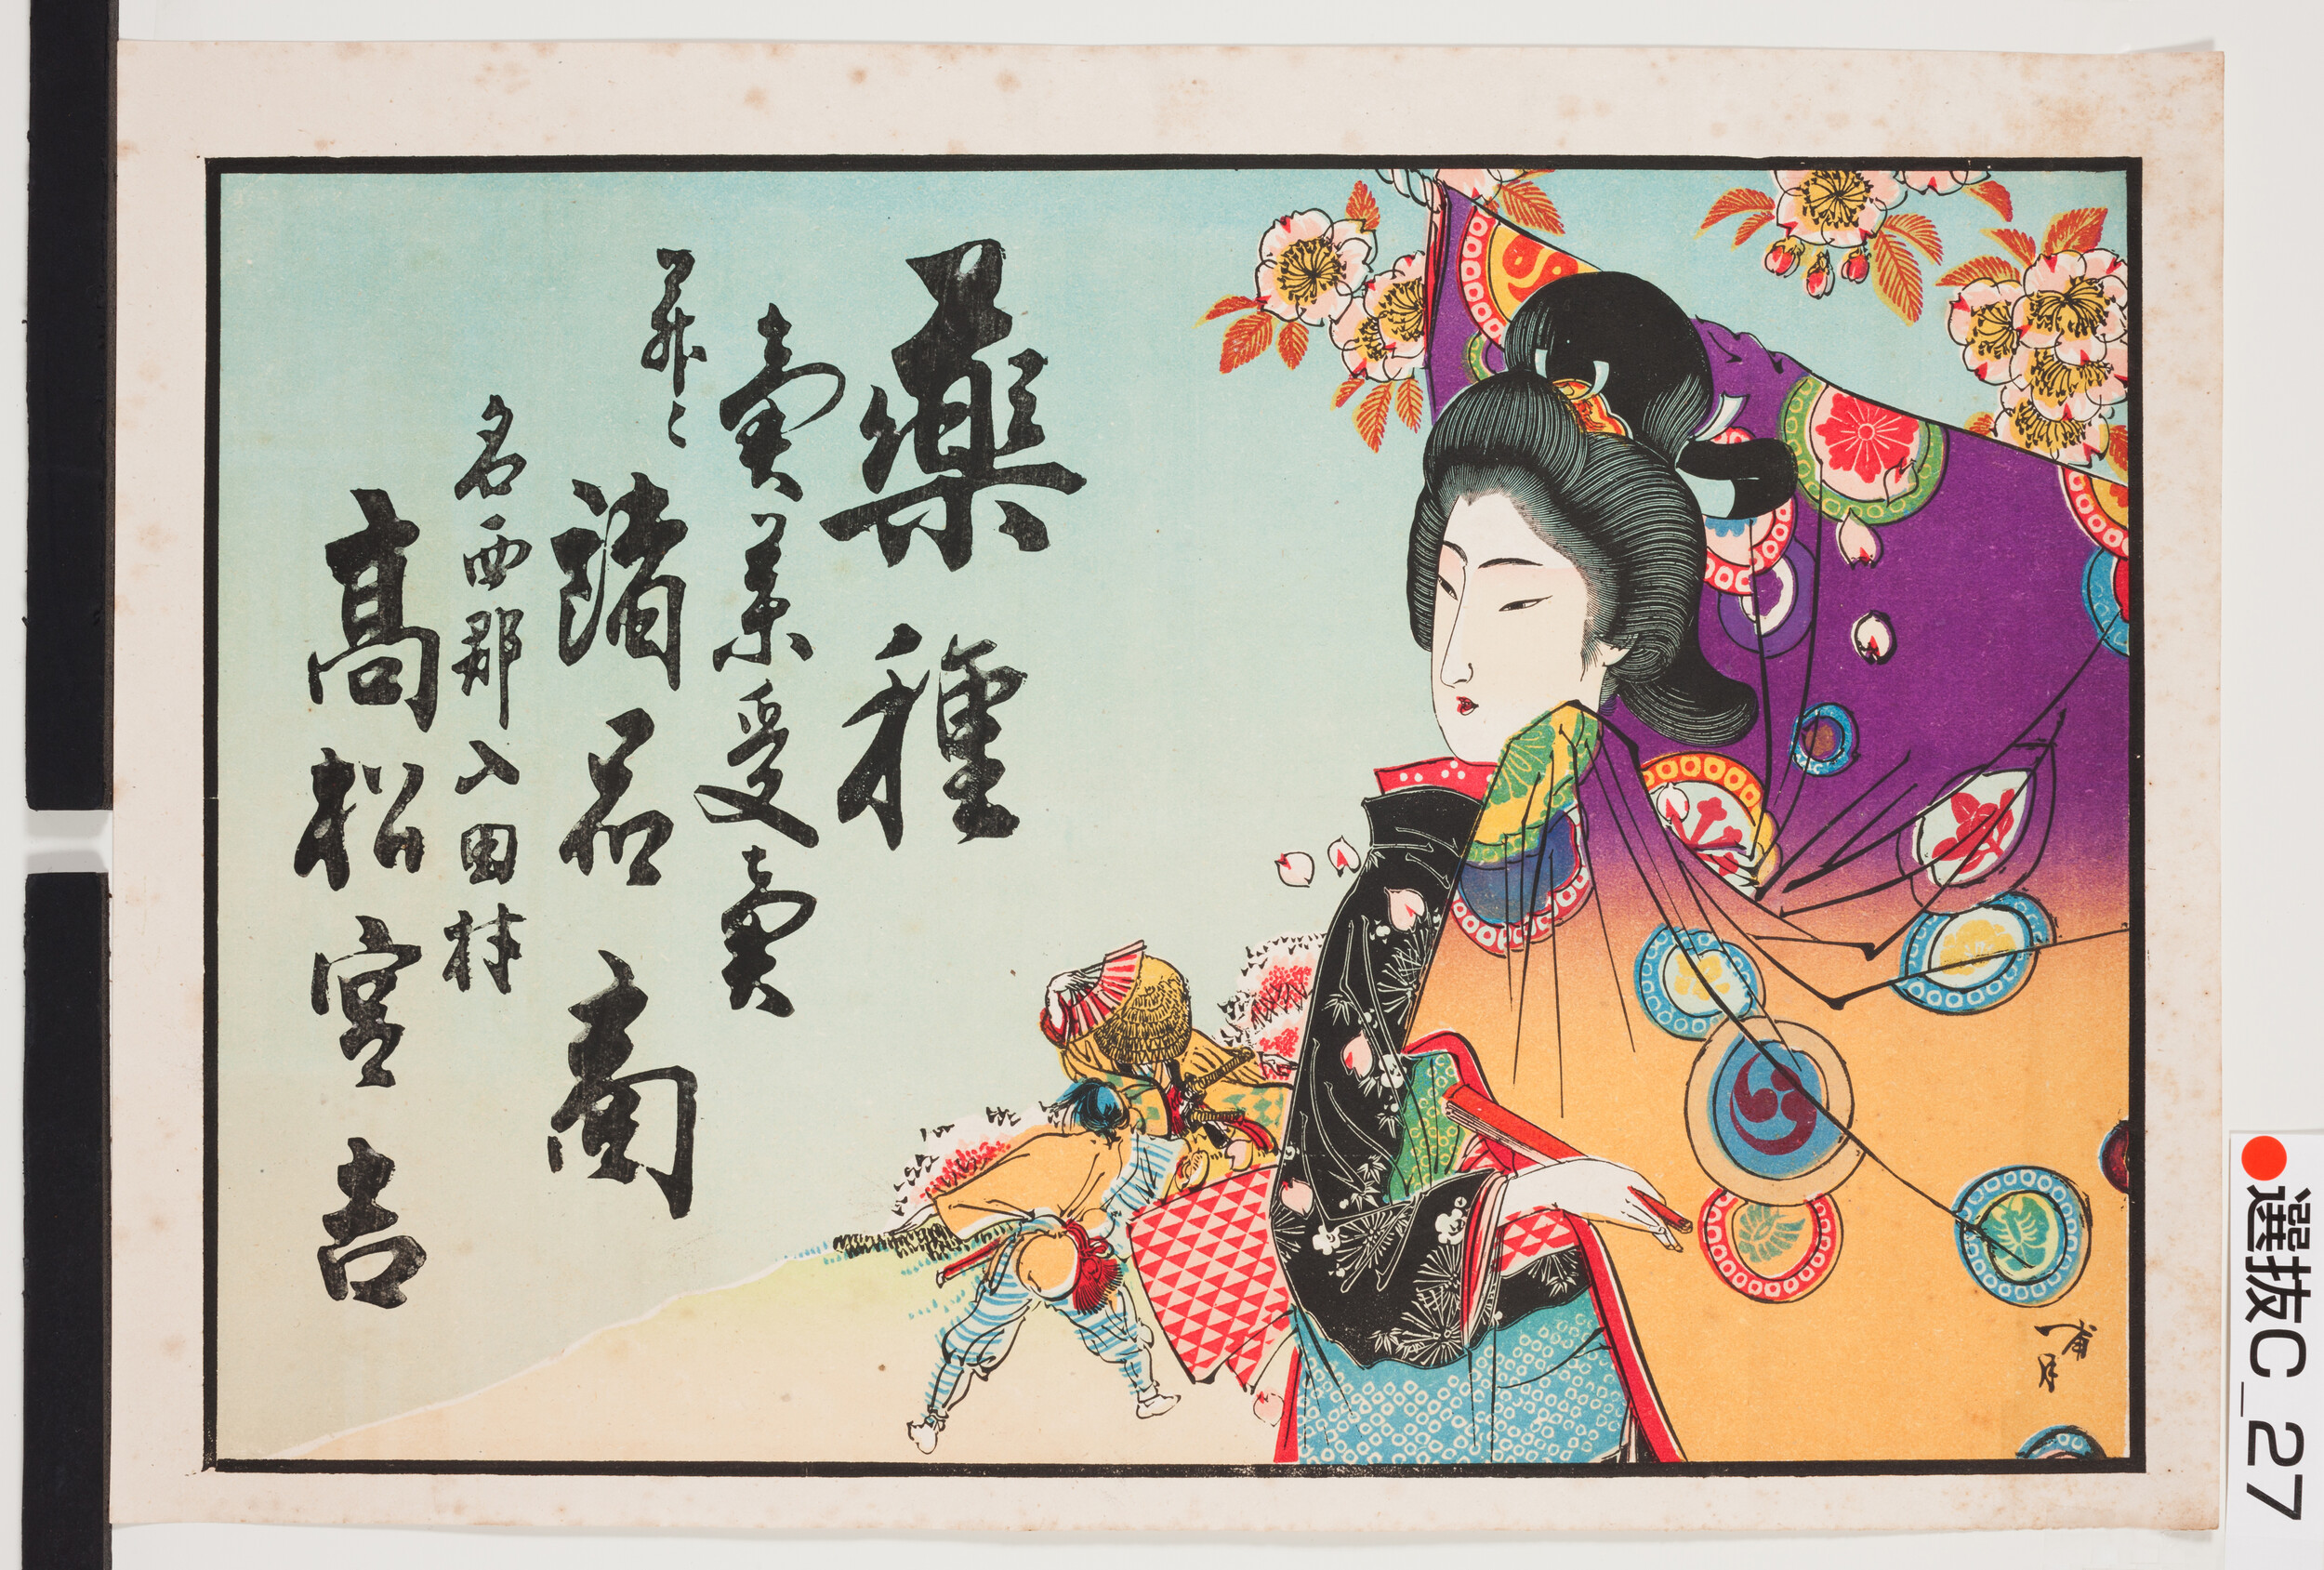 薬種
賣薬受賣
並ニ
諸品商
名西郡入田村
高松宮吉
一甫月
●選抜C_27